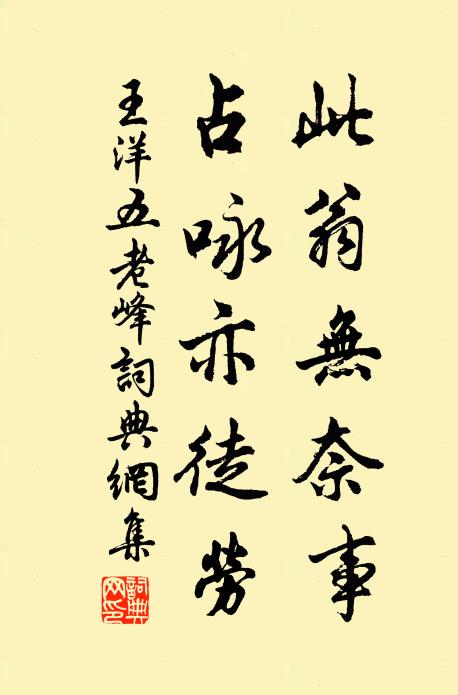 此翁無奈事
占咏亦徒勞
王洋五老峰詞典網集
詞典網印